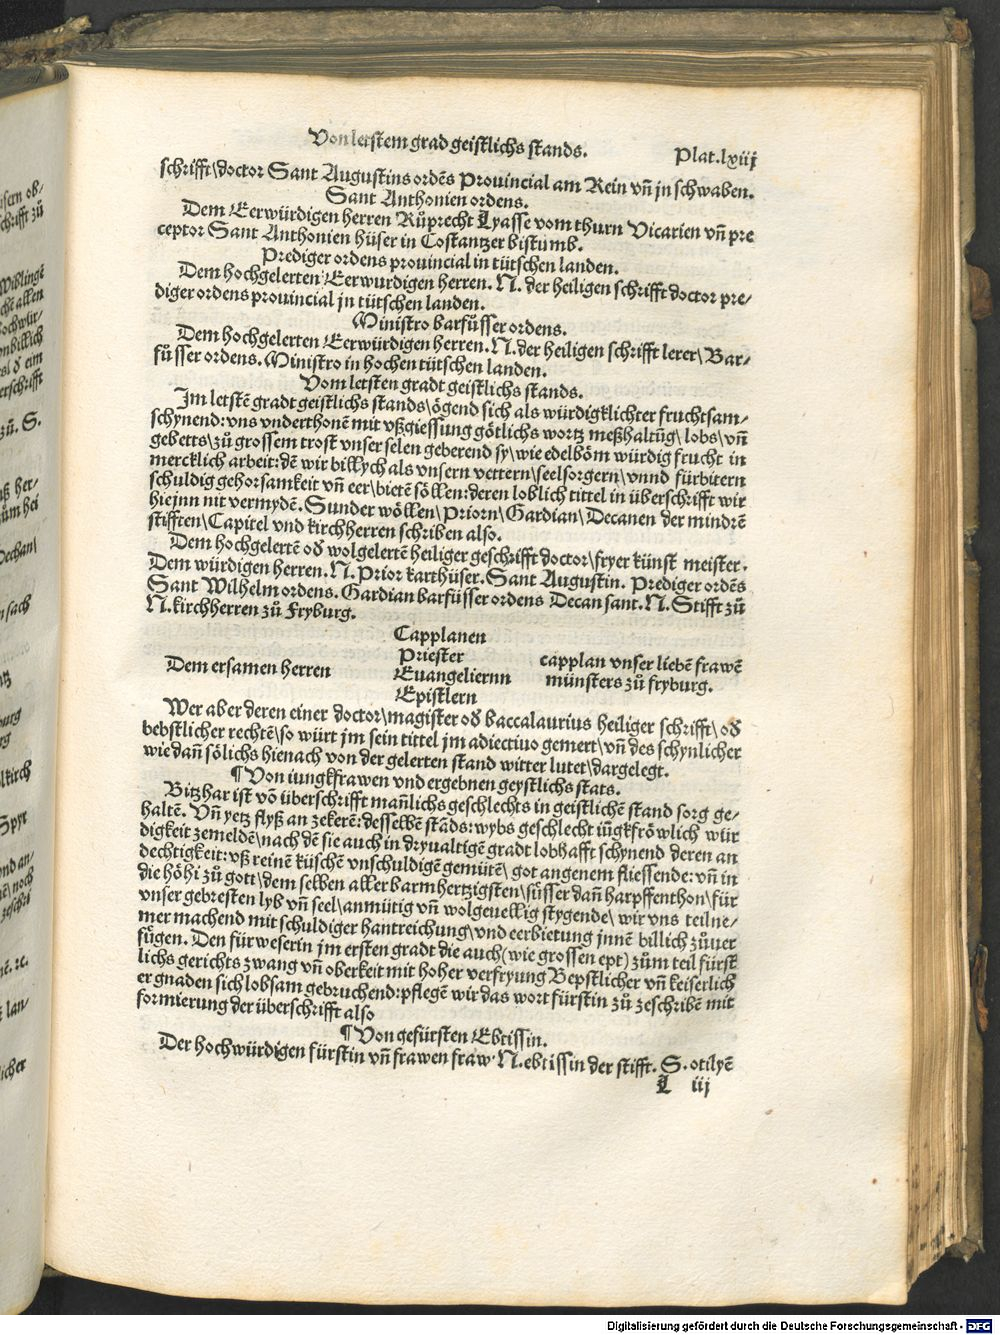 Von lerstem grad geistlichs stands. Plat.lxiij
schrifft\doctor Sant Augustins ordēs Prouincial am Rein vn̄ jn schwaben.
Sant Anthonien ordens.
Dem Eerwürdigen herren Růprecht Lyasse vom thurn Vicarien vn̄ pre
ceptor Sant Anthonien hüser in Costantzer bistumb.
Prediger ordens prouincial in tütschen landen.
Dem hochgelerten Eerwurdigen herren. N. der heiligen schrifft doctor pre/
diger ordens prouincial jn tütschen landen.
Ministro barfůsser ordens.
Dem hochgelerten Eerwürdigen herren. N. der heiligen schrifft lerer\ Bar-
fůsser ordens. Ministro in hochen tütschen landen.
Vom letsten gradt geistlichs stands.
Im letstē gradt geistlichs stands\ ögend sich als würdigklichter fruchtsam-
schynend: vns vnderthonēn mit vßgiessung götlichs wortz meßhaltūg\ lobs\ vn̄
gebetts\ zů grossem trost vnser selen geberend sy\ wie edelböm würdig frucht in
mercklich arbeit: dē wir billych als vnsern vettern\ seelsorgern\ vnnd fürbitern
schuldig gehorsamkeit vn̄ eer\ bietē söllen: deren loblich tittel in überschrifft wir
hiejnn nit vermydē. Sunder wöllen\ Priorn\ Gardian\ Decanen der mindrē
stifften\ Capitel vnd kirchherren schriben also.
Dem hochgelertē od̄ wolgelertē heiliger geschrifft doctor\ fryer künst meister.
Dem würdigen herren. N. Prior karthüser. Sant Augustin. Prediger ordēs
Sant Wilhelm ordens. Gardian barfüsser ordens Decan sant. N. Stifft zů
N. kirchherren zů Fryburg.
Capplanen
Priester
Dem ersamen herren Euangeliernn
Epistlern
capplan vnser liebē frawē
münsters zů fryburg.
Wer aber deren einer doctor\ magister od̄ baccalaurius heiliger schrifft\ od̄
bebstlicher rechtē\ so würt jm sein tittel jm adiectiuo gemert\ vn̄ des schynlicher
wie dan̄ sölichs hienach von der gelerten stand witter lutet\ dargelegt.
¶ Von iungkfrawen vnd ergebnen geystlichs stats.
Bitzhar ist vō überschrifft man̄lichs geschlechts in geistlichē stand sorg ge-
haltē. Vn̄ yetz flyß an zekerē: desselbē stāds: wybs geschlecht iūgkfrōwlich wür
digkeit zemeldē\ nach dē sie auch in dryualtigē gradt lobhafft schynend deren an
dechtigkeit: vß reinē küschē vnschuldigē gemütē\ got angenem fliessende: vn̄ in
die höhi zů gott\ dem selben aller barmhertzigsten\ sůsser dan̄ harpffenthon\ für
vnser gebresten lyb vn̄ seel\ anmütig vn̄ wolgeuellig stygende\ wir vns teilne-
mer machend mit schuldiger hantreichung\ vnd eerbietung jnnē billich zůuer
fůgen. Den fürweserin jm ersten gradt die auch (wie grossen ept) zům teil fürst
lichs gerichts zwang vn̄ oberkeit mit hoher verfryung Bepstlicher vn̄ keiserlich
er gnaden sich lobsam gebruchend: pflegē wir das wort fürstin zů zeschribē mit
formierung der überschrifft also
¶ Von gefürsten Ebtissin.
Der hochwürdigen fürstin vn̄ frawen fraw. N. ebtissin der stifft. S. otilyē
L iij
Digitalisierung gefördert durch die Deutsche Forschungsgemeinschaft - DFG